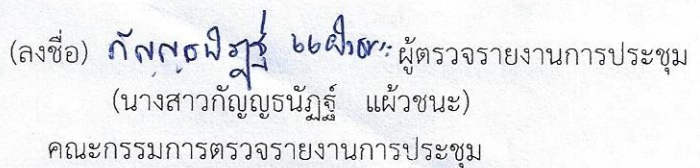 (ลงชื่อ) กัญญธนัฏฐ์ แผ้วชนะ ผู้ตรวจรายงานการประชุม
(นางสาวกัญญธนัฏฐ์ แผ้วชนะ)
คณะกรรมการตรวจรายงานการประชุม